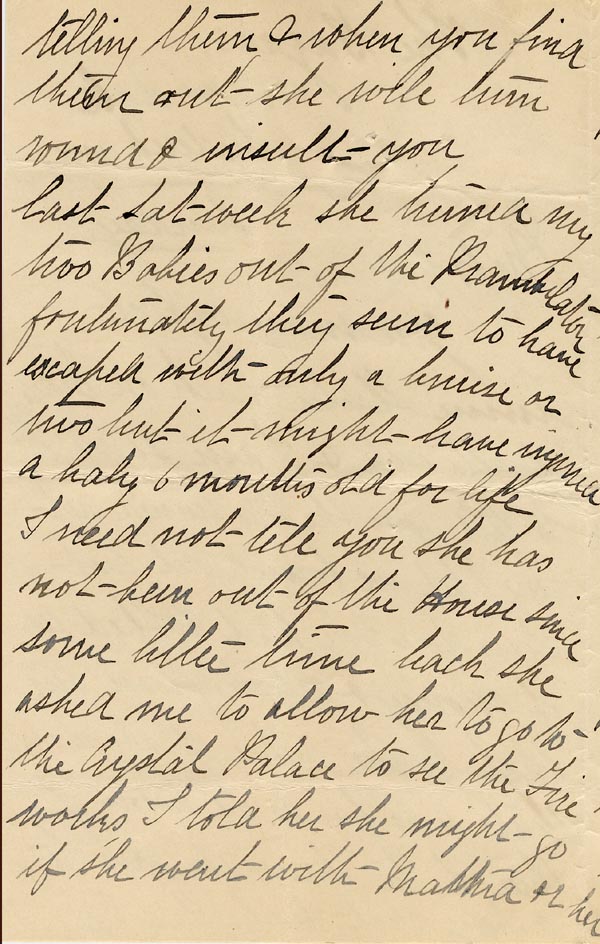 telling them & when you find
them out she will turn
round & insult you
last Sat week she turned my
two Babies out of the Prambulator
fortunately they seem to have
escaped with only a bruise or
two but it might have injured
a baby 6 months old for life
I need not tell you she has
not been out of the House since
some little time back she
asked me to allow her to go to
the Crystal Palace to see the Fire
works I told her she might go
if she went with Martha or her